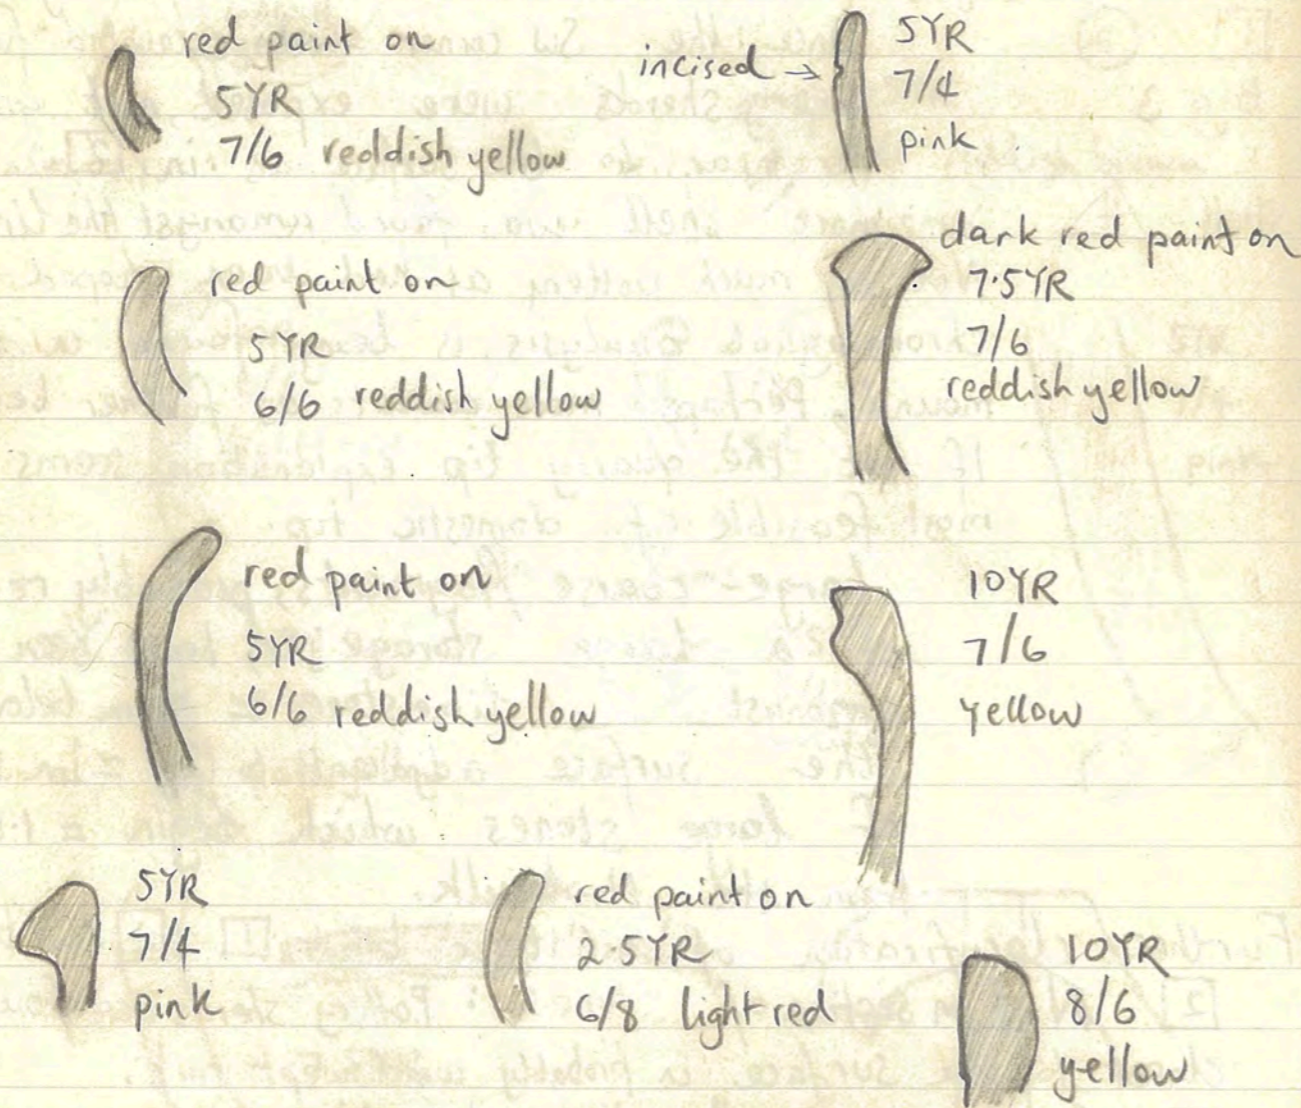 red paint on
5YR
7/6 reddish yellow
incised →
5YR
7/4
pink
red paint on
5YR
6/6 reddish yellow
dark red paint on
7.5YR
7/6
reddish yellow
red paint on
5YR
6/6 reddish yellow
10YR
7/6
yellow
5YR
7/4
pink
red paint on
2.5YR
6/8 light red
10YR
8/6
yellow